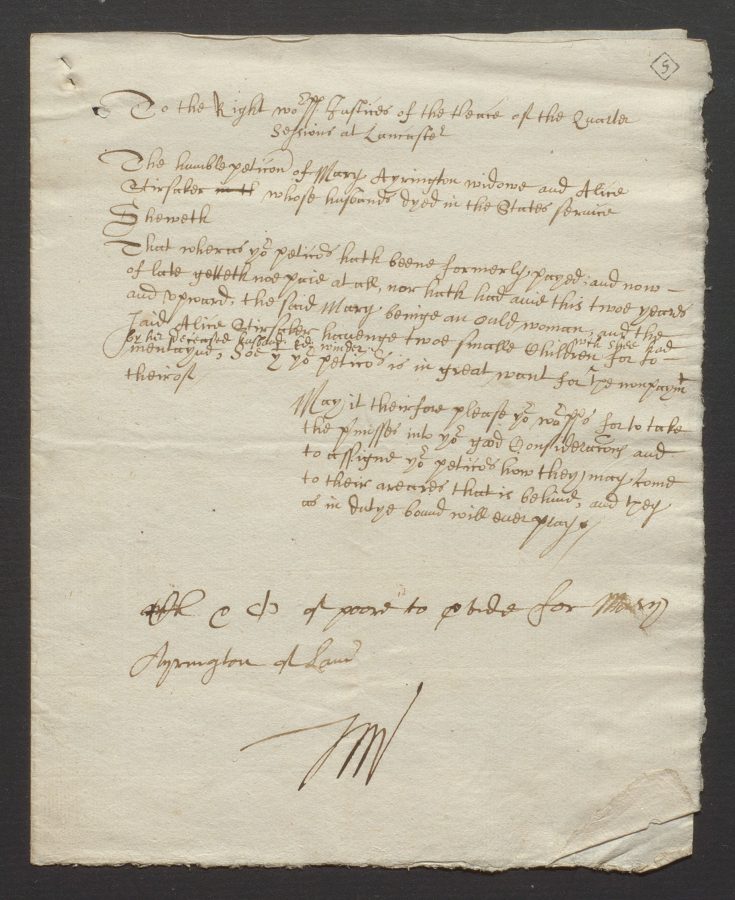 5
To the Right wo:pp Justices of the Peace of the Quarter
Sessions at Lancaster
The humble peticon of Mary Ayrington widowe and Alice
Stirsaker in th whose husbands dyed in the States service
Sheweth
That wheras yo:r petico:rs hath beene formerly payed, and now
of late getteth noe paie at all, nor hath had anie this twoe years
and upward, the said Mary beinge an ould woman, and the
said Alice Stirsaker haveinge twoe smalle Children for to
by her deceased husband with shee had
mentayne, Soe yo:r petico:rs is in great want for the nonpaym:t
theirof
May it theirfore please yo:r wo:pps for to take
the p'misses into yo:r good Consideracons and
to assigne yo:r petico:rs how they may come
to their areares that is behind, and they
as in dutye bound will ever pray
of poore to p'vide for Mary
Ayrington of Lanc